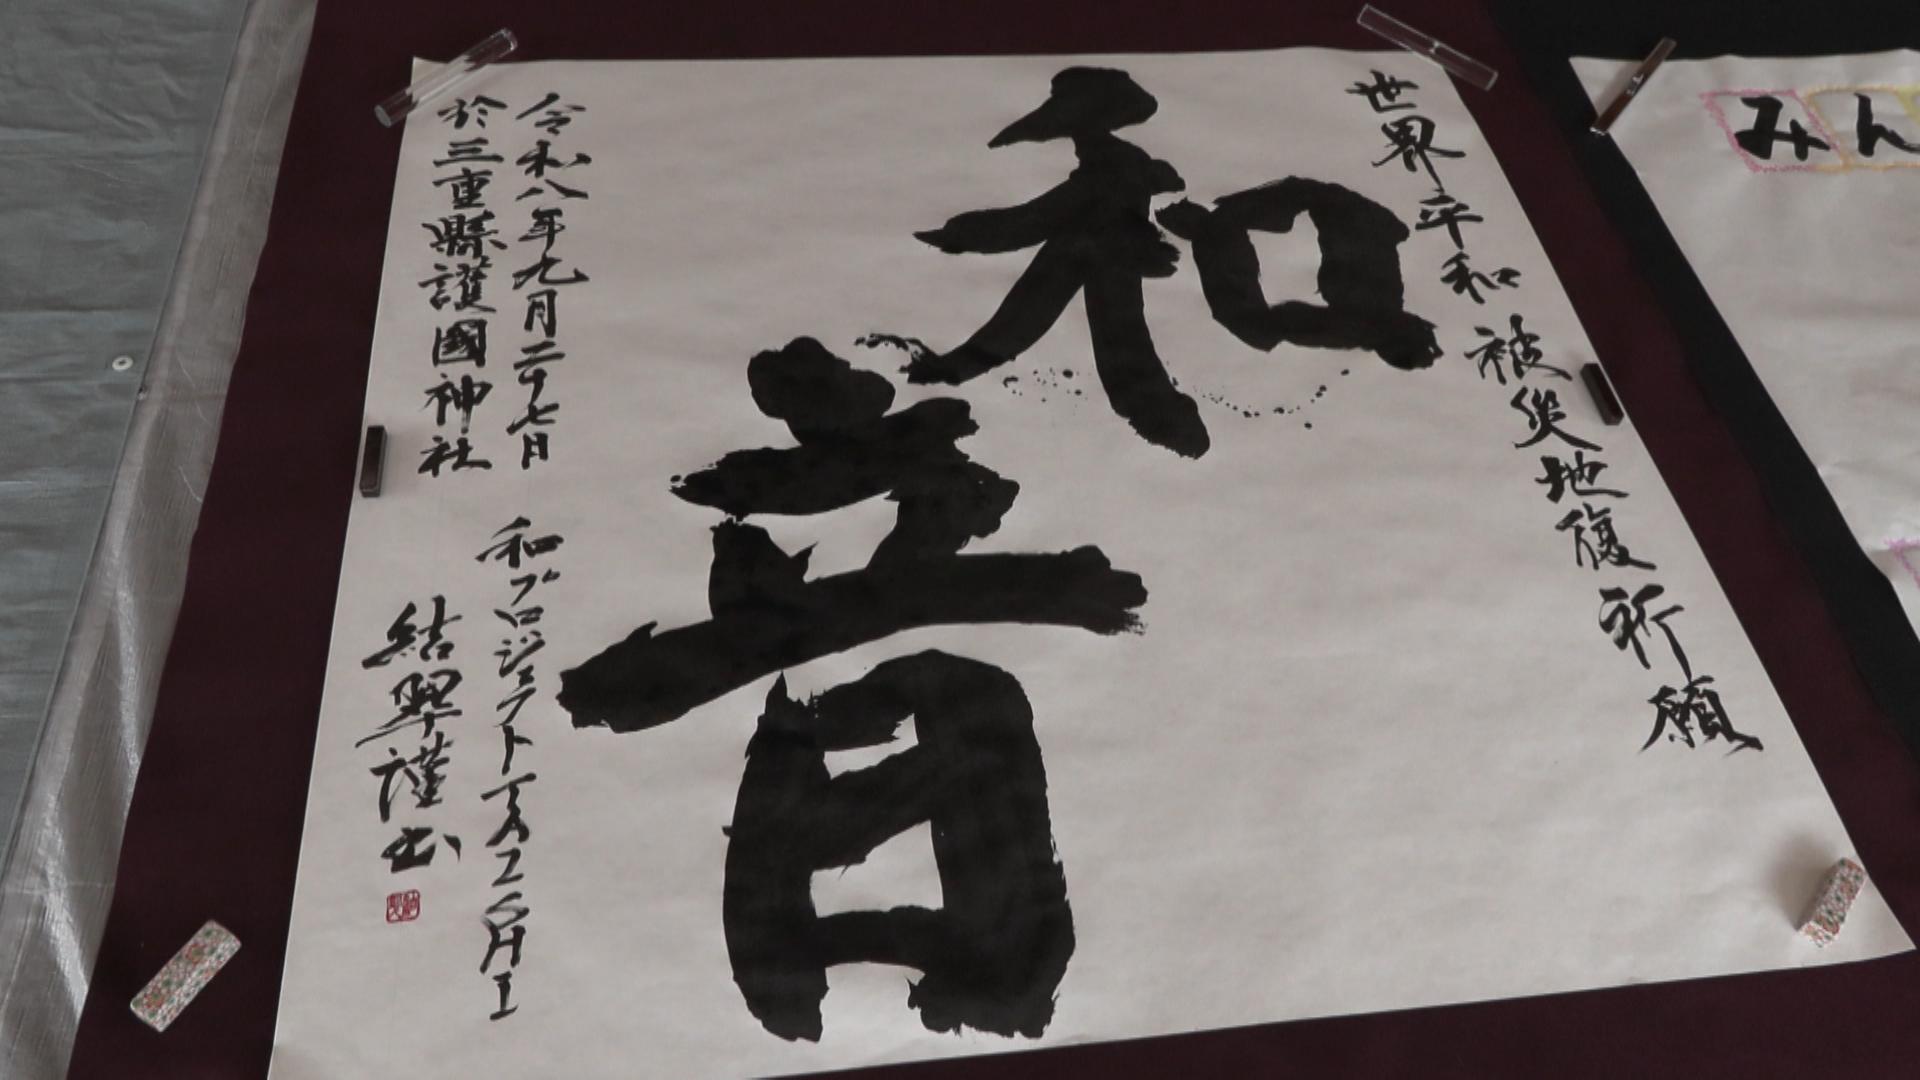 世界平和 被災地復祈願
和音
令和八年九月二十七日
於三重縣護國神社
和プロジェクトTAISHI
結翠謹書
みん